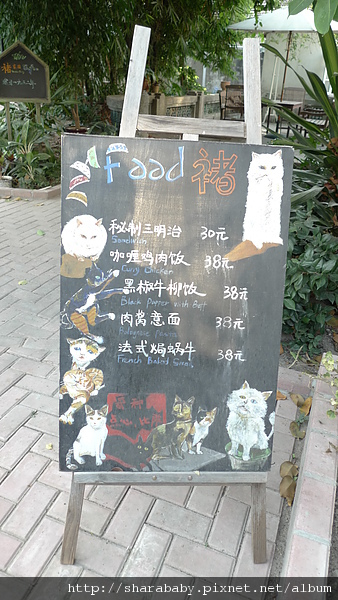 Food 褚
秘制三明治 30元
Sandwich
咖喱鸡肉饭 38元
Curry Chicken
黑椒牛柳饭 38元
Black Pepper with Beef
肉酱意面 38元
法式焗蜗牛 38元
French Baked Snails
http://sharababy.pixnet.net/album